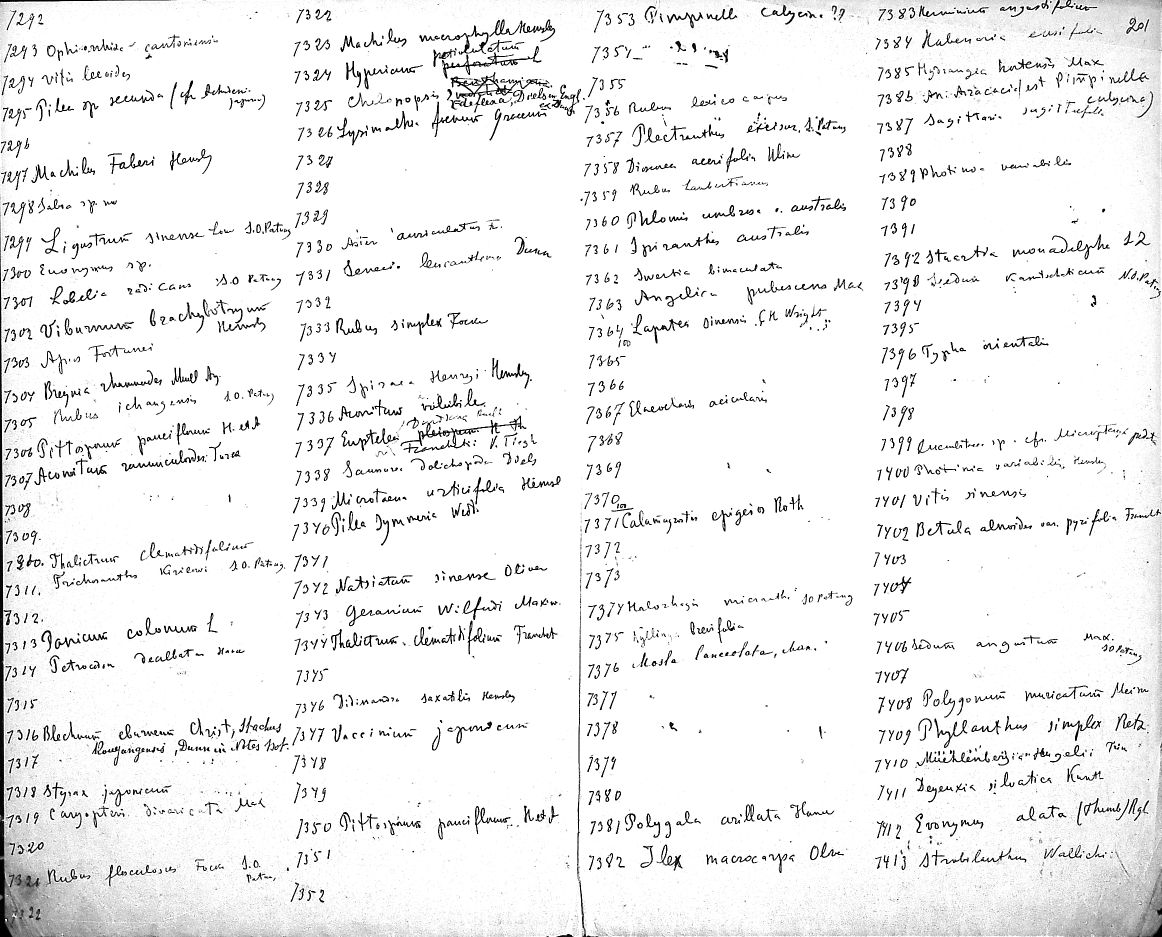 7292
7293 Ophiorrhiza cantoniensis
7294 Vitis leeoides
7295 Pilea sp secunda (cfr
japonica)
7296
7297 Machilus Faberi Hemsly
7298 Sabia sp no
7299 Ligustrum sinense Lou S.O. Patung
7300 Evonymus sp.
7301 Lobelia radicans S.O Patung
7302 Viburnum brachybotryum
Hemsly
7303 Apios Fortunei
7304 Breynia rhamnoides Muell Arg.
7305 Rubus ichangensis S.O. Patung
7306 Pittosporum pauciflorum H. et A
7307 Aconitum ranunculoides Turcz
7308
7309.
7310. Thalictrum clematidifolium
7311. Trichosanthes S.O. Patung
7312.
7313 Panicum colonum L
7314 Petrocosmea Hance
7315
7316 Blechnum eburneum Christ, Stachys
Kouyangensis, Dunn in Notes Bot.
7317
7318 Styrax japonicum
7319 Caryopteris divaricata Max
7320
7321 Rubus flosculosus Focke S.O.
Patung.
7322
7322
7323 Machilus macrophylla Hemsly
petiolulatum
7324 Hypericum perforatum L
7325 Chelonopsis
Diels in Engl.
7326 Lysimachia
7327
7328
7329
7330 Aster auriculatus F.
7331 Senecio leucanthemus Dunn
7332
7333 Rubus simplex Focke
7334
7335 Spiraea Henryi Hemsley.
7336 Aconitum volubile
7337 Euptelea pleiosperma H Th
Franchetii V. Tiegh
7338 Saussurea dolichopoda Diels
7339 Microtaena urticifolia Hemsl
7340 Pilea Symmeria Wedd.
7341
7342 Natsiatum sinense Oliver
7343 Geranium Wilfordi Maxim.
7344 Thalictrum clematidifolium Franchet
7345
7346 Didissandra saxatilis Hemsley
7347 Vaccinium japonicum
7348
7349
7350 Pittosporum pauciflorum H et A
7351
7352
7353 Pimpinella calycina ??
7354 " "
7355
7356 Rubus
7357 Plectranthus excisus, S. Patung
7358 Dioscorea acerifolia Uline
7359 Rubus Lambertianus
7360 Phlomis umbrosa v. australis
7361 Spiranthes australis
7362 Swertia bimaculata
7363 Angelica pubescens Max
7364 Laportea sinensis C.H. Wright
100
7365
7366
7367 Eleocharis acicularis
7368
7369
7370
100
7371 Calamagrostis epigeios Roth
7372
7373
7374 Halorhagis micrantha SO Patung
7375 Kyllinga brevifolia
7376 Mosla lanceolata, Max.
7377
7378
7379
7380
7381 Polygala arillata Hamu
7382 Ilex macrocarpa Oliv
7383 Herminium angustifolium
201
7384 Habenaria ensifolia
7385 Hydrangea hortensis Max
7386 An Araceae (est Pimpinella
calycina)
7387 Sagittaria sagittifolia
7388
7389 Photinia variabilis
7390
7391
7392 Stuartia monadelpha SZ
7393 Sedum Kamtschaticum N.O. Patung
7394
7395
7396 Typha orientalis
7397
7398
7399
7400 Photinia variabilis, Hemsley
7401 Vitis sinensis
7402 Betula alnoides var. pyrifolia Franchet
7403
7404
7405
7406 Sedum angustum Max.
SO Patung
7407
7408 Polygonum muricatum Meisn
7409 Phyllanthus simplex Retz
7410 Muehlenbergia Hugelii Trin
7411 Deyeuxia silvatica Kunth
7412 Evonymus alata (Thunb) Rgl
7413 Strobilanthus Wallichi